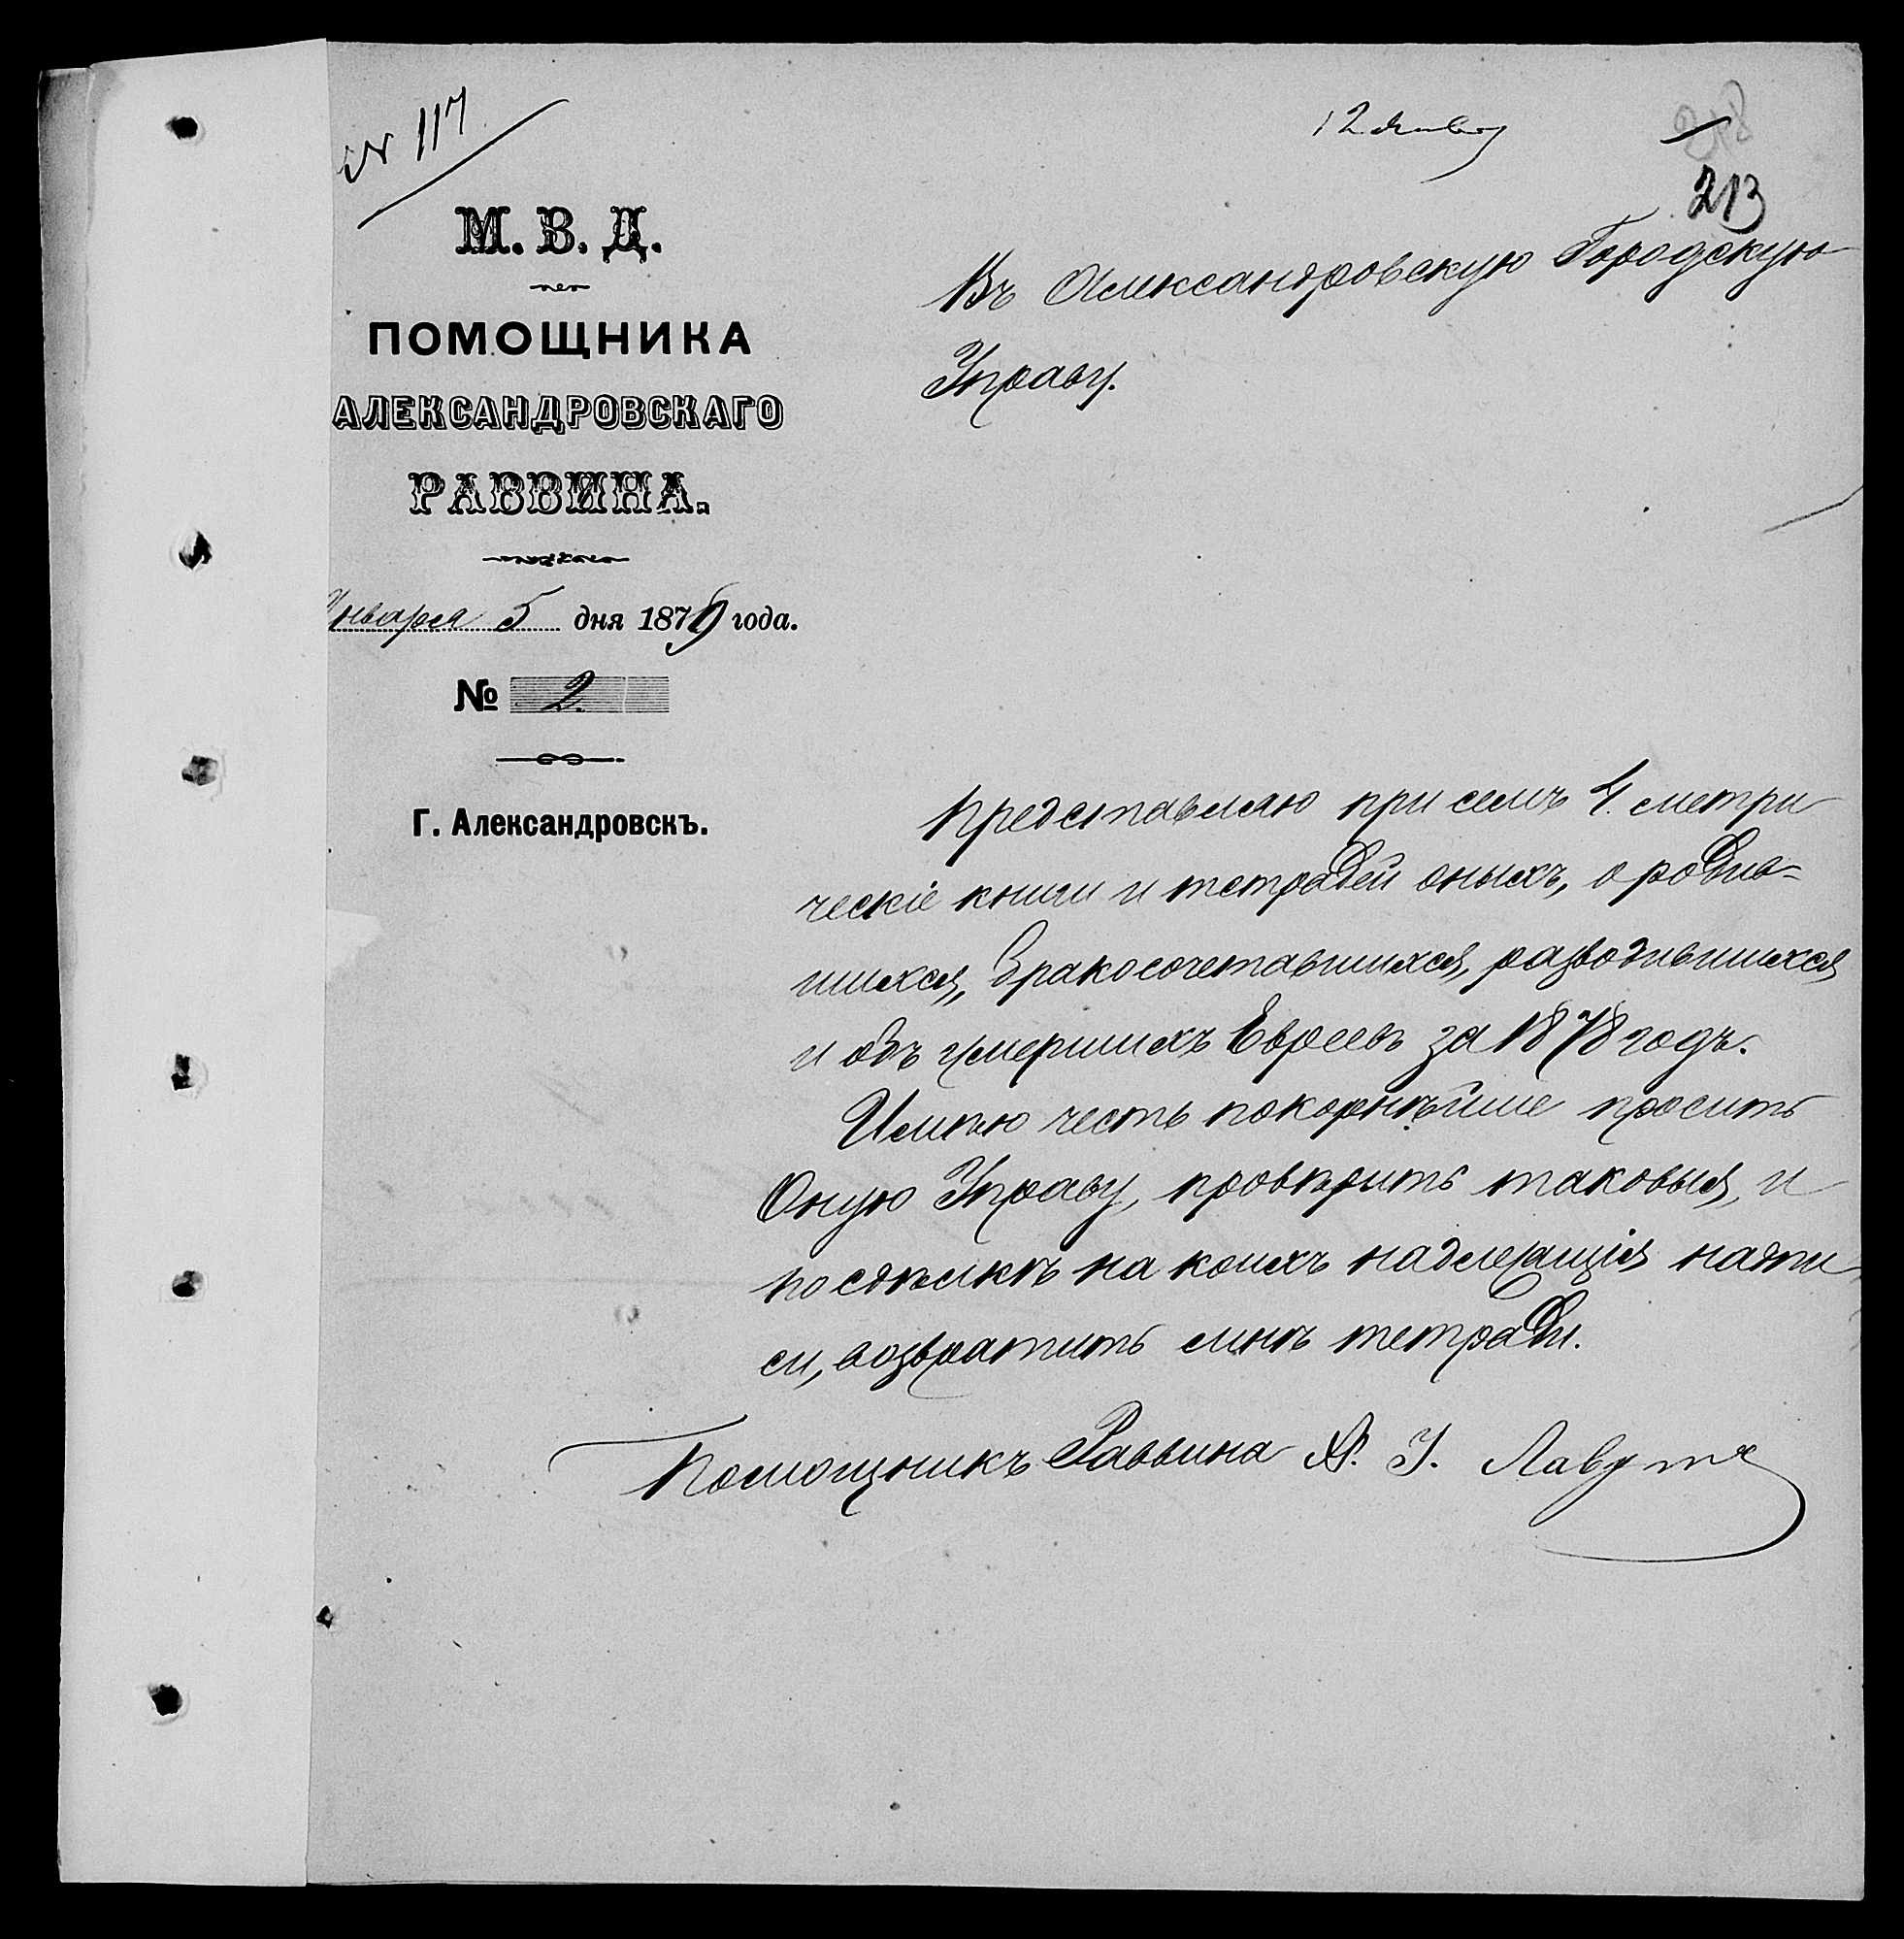 № 117
12 январ
213
М. В. Д.
ПОМОЩНИКА
АЛЕКСАНДРОВСКАГО
РАВВИНА.
Января 5 дня 1879 года.
№ 2.
Г. Александровскъ.
Въ Александровскую Городскую
Управу.
Представляю при семъ 4. метри
ческіе книги и тетрадей оныхъ, о родив=
шихся, бракосочетавшихся, разводившихся
и объ умершихъ Евреевъ за 1878 годъ.
Имѣю честь покорнѣйше просить
Оную Управу, провѣрить таковыя, и
по сдѣлкѣ на коихъ надлежащія надпи
си, возвратить мнѣ тетради.
Помощникъ Раввина А. I. Лавутъ